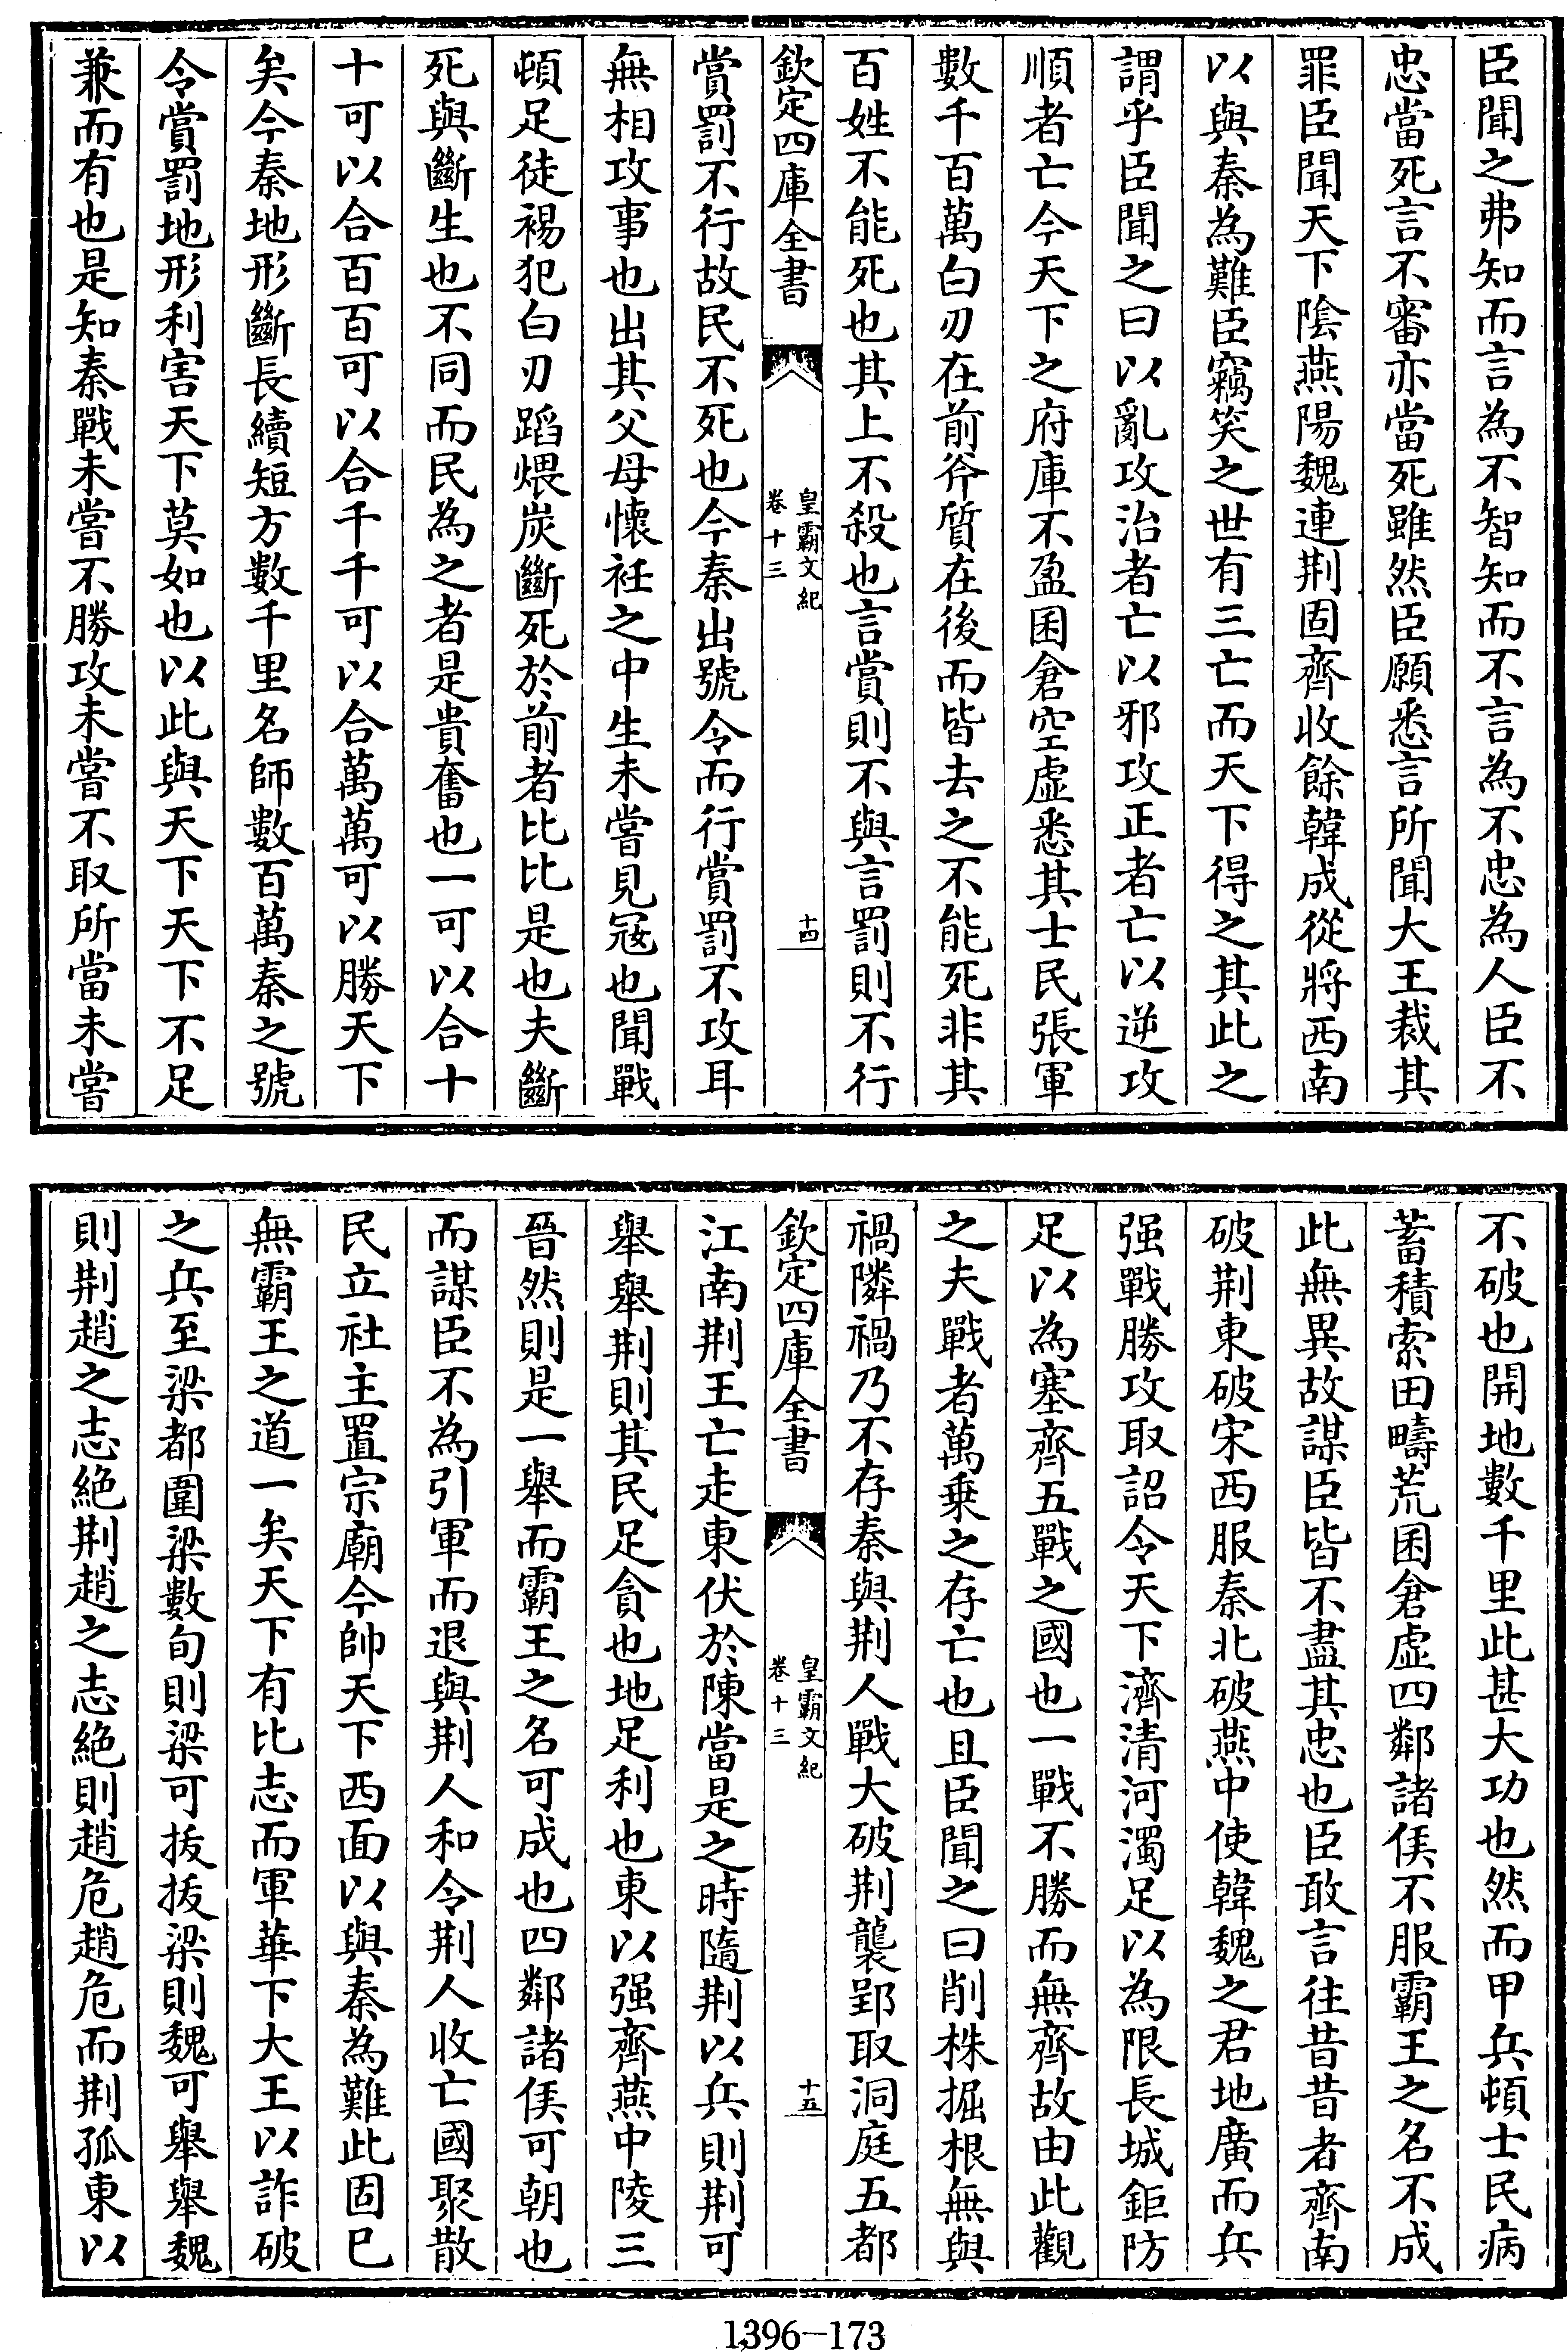 臣聞之弗知而言為不智知而不言為不忠為人臣不
忠當死言不審亦當死雖然臣願悉言所聞大王裁其
罪臣聞天下陰燕陽魏連荆固齊收餘韓成從將西南
以與秦為難臣竊笑之世有三亡而天下得之其此之
謂乎臣聞之曰以亂攻治者亡以邪攻正者亡以逆攻
順者亡今天下之府庫不盈囷倉空虛悉其士民張軍
數千百萬白刃在前斧質在後而皆去之不能死非其
百姓不能死也其上不殺也言賞則不與言罰則不行
欽定四庫全書
皇霸文紀
卷十三
十四
賞罰不行故民不死也今秦出號令而行賞罰不攻耳
無相攻事也出其父母懷衽之中生未嘗見宼也聞戰
頓足徒裼犯白刃蹈煨炭斷死於前者比比是也夫斷
死與斷生也不同而民為之者是貴奮也一可以合十
十可以合百百可以合千千可以合萬萬可以勝天下
矣今秦地形斷長續短方數千里名師數百萬秦之號
令賞罰地形利害天下莫如也以此與天下天下不足
兼而有也是知秦戰未嘗不勝攻未嘗不取所當未嘗
不破也開地數千里此甚大功也然而甲兵頓士民病
蓄積索田疇荒囷倉虛四鄰諸侯不服霸王之名不成
此無異故謀臣皆不盡其忠也臣敢言往昔昔者齊南
破荆東破宋西服秦北破燕中使韓魏之君地廣而兵
强戰勝攻取詔令天下濟清河濁足以為限長城鉅防
足以為塞齊五戰之國也一戰不勝而無齊故由此觀
之夫戰者萬乗之存亡也且臣聞之曰削株掘根無與
禍隣禍乃不存秦與荆人戰大破荆襲郢取洞庭五都
欽定四庫全書
皇霸文紀
卷十三
十五
江南荆王亡走東伏於陳當是之時隨荆以兵則荆可
舉舉荆則其民足貪也地足利也東以强齊燕中陵三
晉然則是一舉而霸王之名可成也四鄰諸侯可朝也
而謀臣不為引軍而退與荆人和令荆人收亡國聚散
民立社主置宗廟令帥天下西面以與秦為難此固已
無霸王之道一矣天下有比志而軍華下大王以詐破
之兵至梁都圍梁數旬則梁可拔拔梁則魏可舉舉魏
則荆趙之志絶荆趙之志絶則趙危趙危而荆孤東以
1396-173